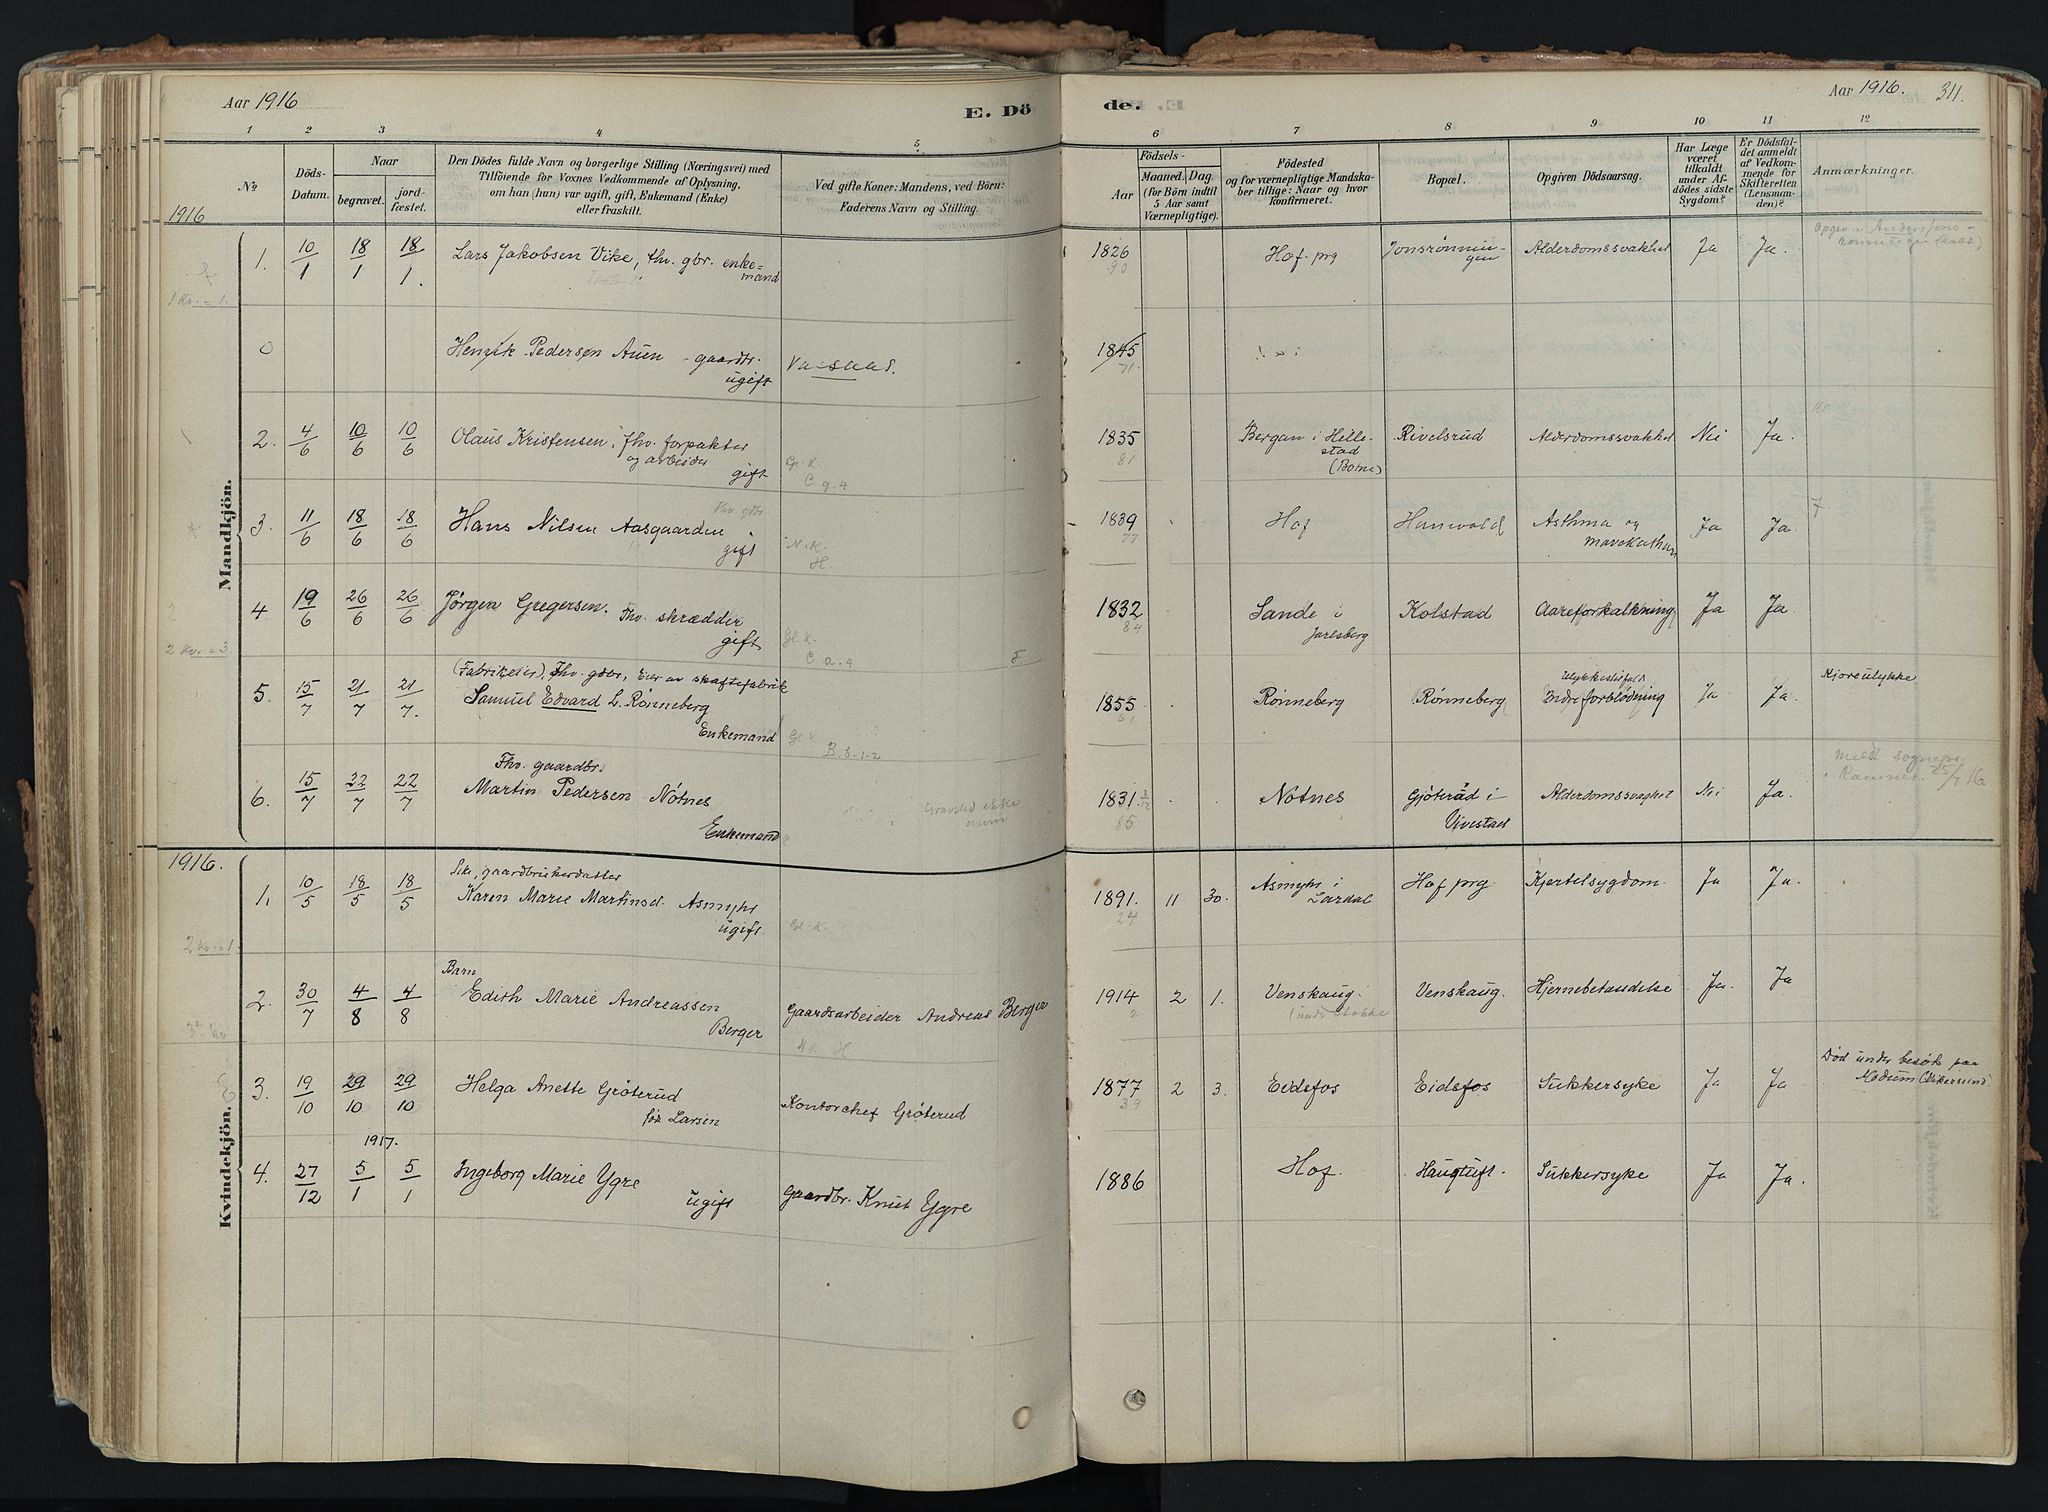 Aar 1916
E. Dö
de.
Aar 1916.
311.
1 2 3 4 5 6 7 8 9 10 11 12
No
Döds-
Datum.
Naar
begravet.
jord-
fæstet.
Den Dödes fulde Navn og borgerlige Stilling (Næringsvei) med
Tilföiende for Voxnes Vedkommende af Oplysning,
om han (hun) var ugift, gift, Enkemand (Enke)
eller fraskilt.
Ved gifte Koner: Mandens, ved Börn:
Faderens Navn og Stilling.
Födsels-
Aar
Maaned. Dag.
(for Börn indtil
5 Aar samt
Værnepligtige).
Födested
og for værnepligtige Mandska-
ber tillige: Naar og hvor
konfirmeret.
Bopæl.
Opgiven Dödsaarsag.
Har Læge
været
tilkaldt
under Af-
dödes sidste
Sygdom?
Er Dödsfal-
det anmeldt
af Vedkom-
mende for
Skifteretten
(Lensman-
den)?
Anmærkninger.
1916
Mandkjön.
1 Kv. = 1.
1. 10/1 18/1 18/1. Lars Jakobsen Vike, fhv. gbr. enke=
mand
1826 Hof prg Jonsrønnin-
gen Alderdomssvakhet Ja Ja.
90
0 Henrik Pedersen Auen - gaardbr.
ugift
1845
71.
2. 4/6 10/6 10/6 Olaus Kristensen, fhv. forpakter
og arbeider
gift
Gl. K
C 9. 4
1835 Bergan i Hille-
stad
(Botne) Rivelsrud Alderdomssvakhet Nei Ja.
81
3. 11/6 18/6 18/6 Hans Nilsen Aasgaarden
Fhv. gbr.
gift
N. K.
H.
1839 Hof Hanwold Asthma og
Mavekathar Ja Ja.
77
4. 19/6 26/6 26/6 Jørgen Gregersen. Fhv. skrædder
gift
Gl K.
C a. 4
1832 Sande i
Jarlsberg Kolstad Aareforkalkning Ja Ja.
84
2 Kv. = 3.
5. 15/7 21/7 21/7. (Fabrikeier), Fhv. gdbr, Eier av skaftefabrik
Samuel Edvard L. Rønneberg
Enkemand
Gl K
B. 8. 1-2
1855 Rønneberg Rønneberg Ulykkestilfæld
Indre forblødning Ja Ja. Kjøreulykke
61
6. 15/7 22/7 22/7 Fhv. gaardbr.
Martin Pedersen Nøtnes
Enkemand
Gravsted ikke
1831 3/12 Nøtnes Gjøterød i
Vivestad Alderdomssvaghet Nei Ja.
85
25/7 16.
1916.
Kvindekjön.
1. 10/5 18/5 18/5 gaardbrukerdatter
Karen Marie Martinsd. Asmyhr
ugift.
Gl K.
1891. 11 30. Asmyhr i
Lardal Hof prg. Kjertelsygdom. Ja Ja.
24
2 Kv. = 1.
2. 30/7 4/8 4/8 Barn
Edith Marie Andreassen
Berger
Gaardsarbeider Andreas Berger
1914 2 1. Venskaug. Venskaug. Hjernebetændelse Ja. Ja
2
3. 19/10 29/10 29/10 Helga Anette Grøterud
fød Larsen
Kontorchef Grøterud
1877 2 3. Eidsfos Eidsfos Sukkersyke Ja Ja
39
Død under besøk paa
Modum (Vikersund)
1917.
4. 27/12 5/1 5/1 Ingeborg Marie Ygre
ugift
Gaardbr. Knut Ygre
1886 Hof. Haugtuft. Sukkersyke Ja Ja.